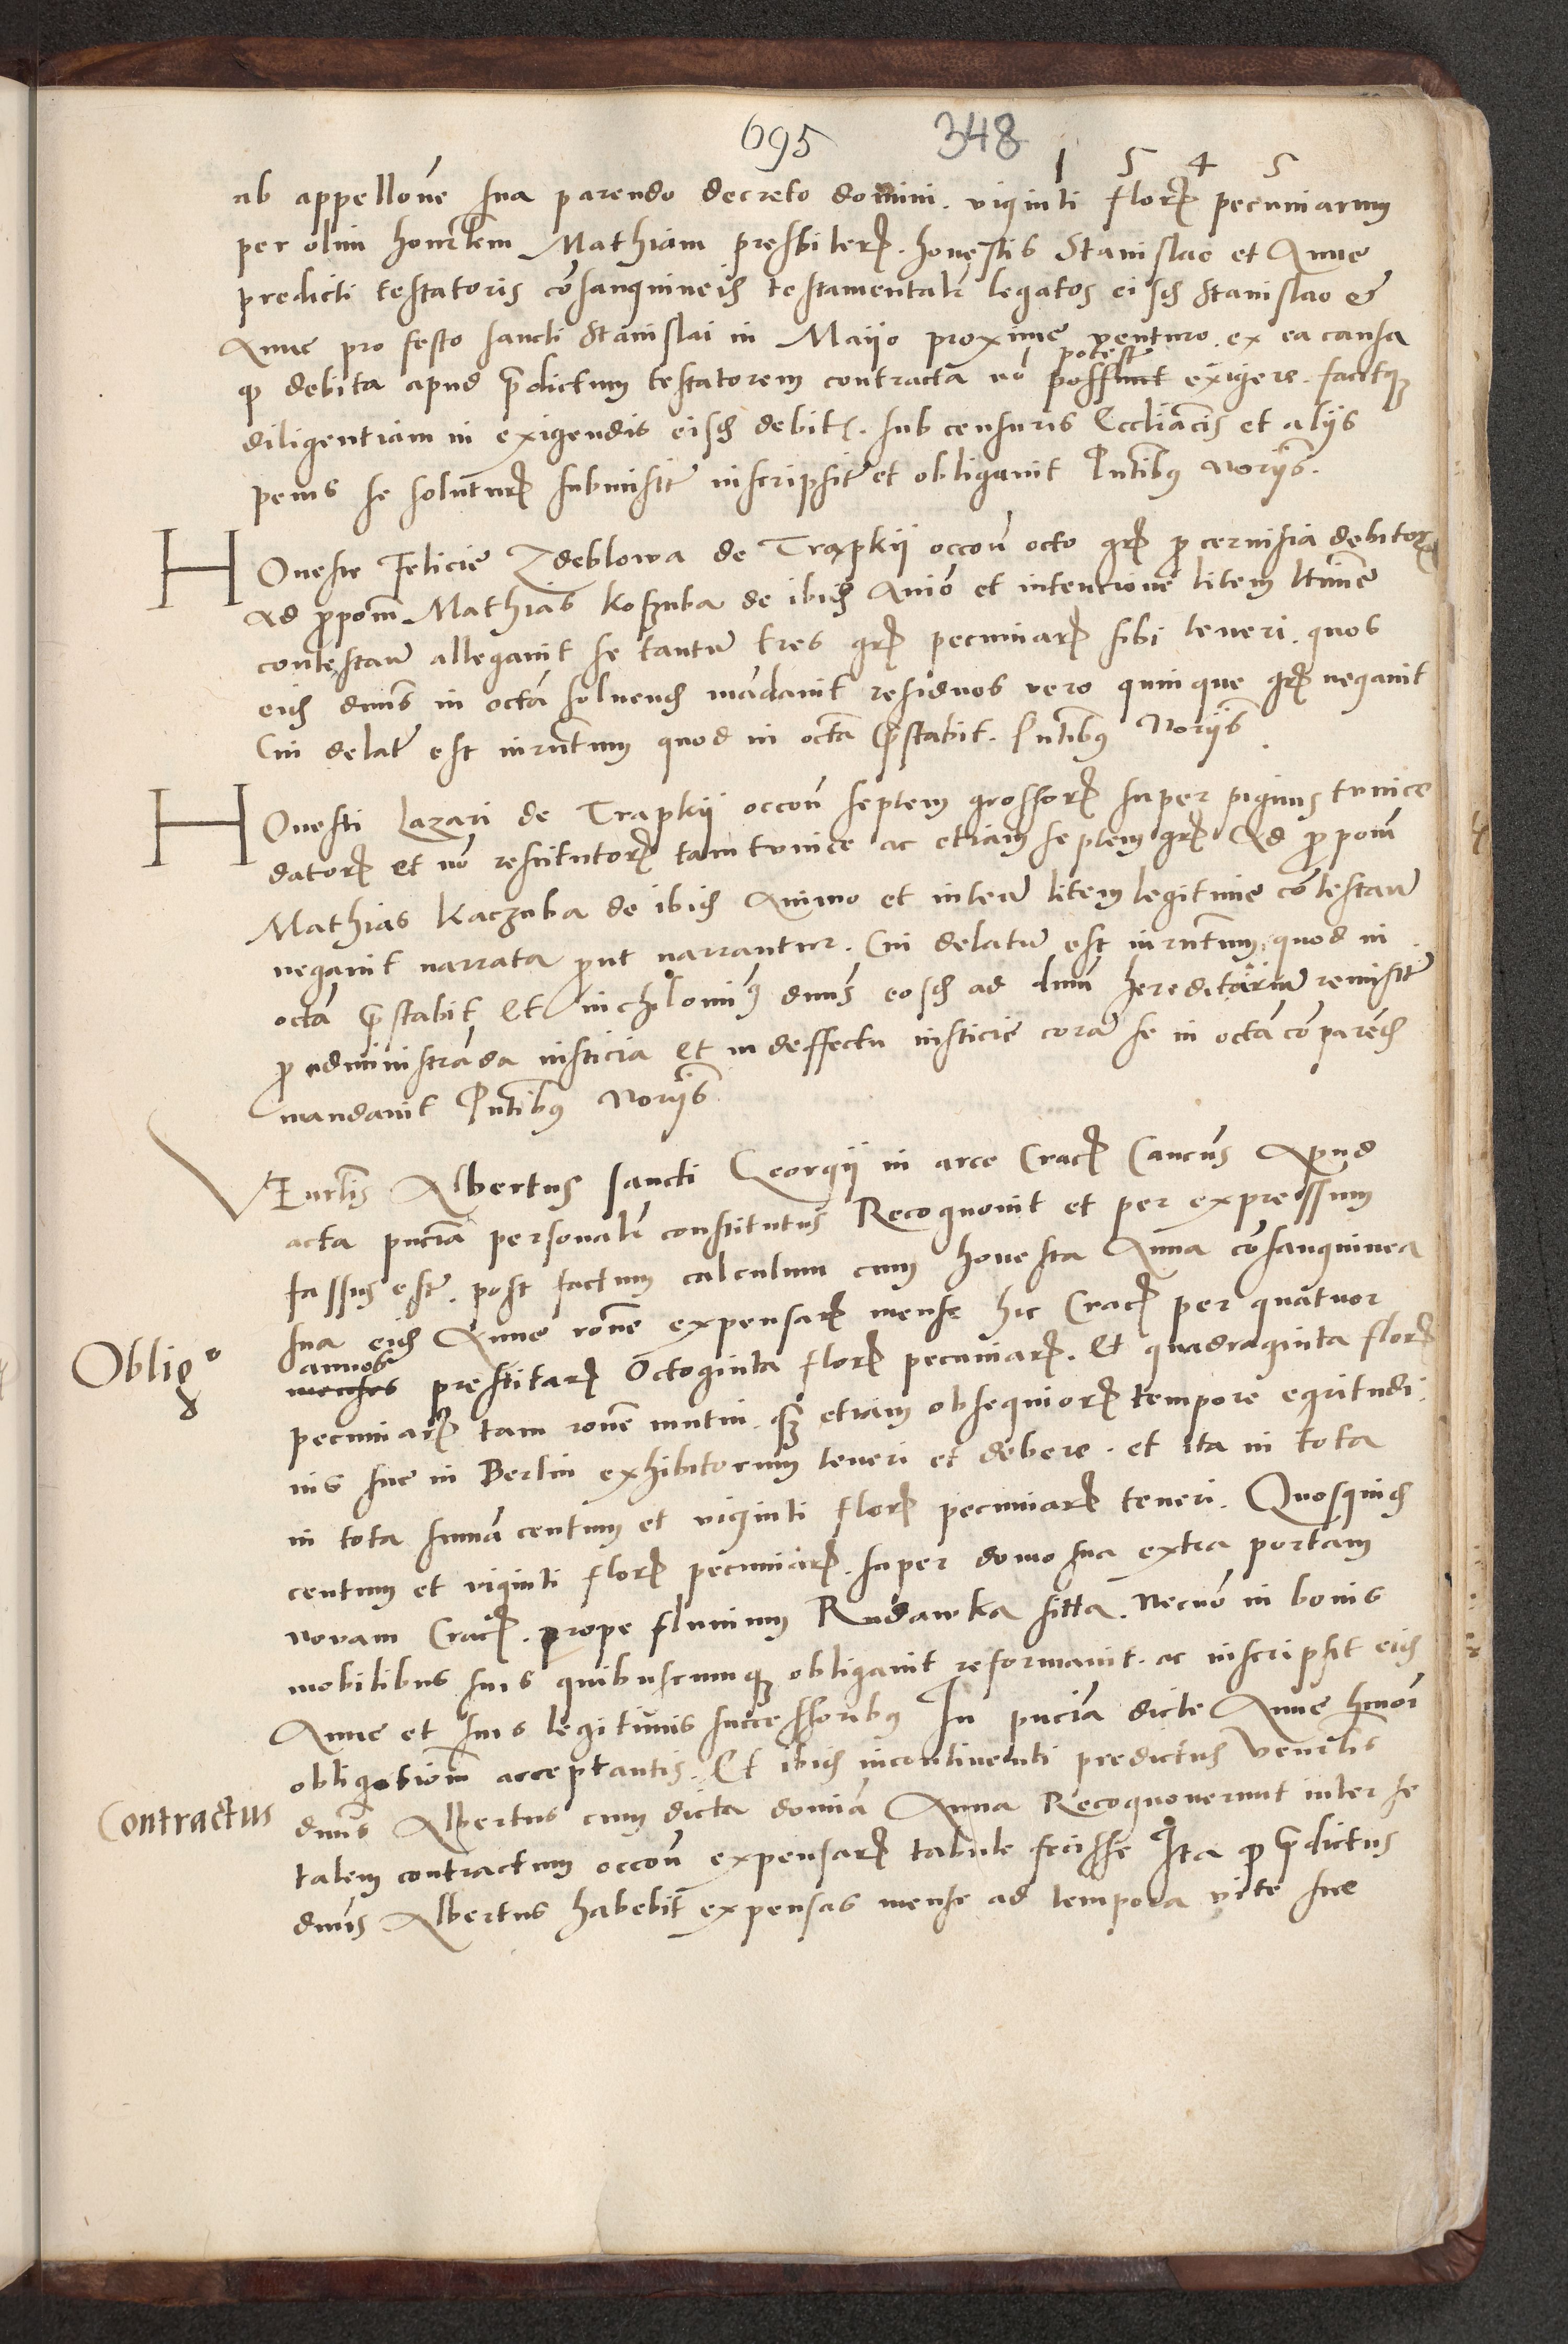 695 348
1 5 4 5
ab appellone sua parendo decreto domini. viginti flor pecuniarum
per olim honorlem Mathiam presbiter. honestis Stanislao et Anne
predicti testatoris consanguineis testamentalr legatos eisd Stanislao et
Anne pro festo sancti Stanislai in Mayo proxime venturo. ex ea causa
potest
q debita apud pdictum testatorem contracta no possunt exigere. facitque
diligentiam in exigendis eisd debit. sub censuris Eccliacis et alijs
penis se soluturu submisit inscripsit et obligauit Pntibus Norijs.
HOneste Felicie Zdeblowa de Trapkij occon octo gr p ceruisia debitor
Ad ppom Mathias Koszuba de ibid Anio et intentione litem ltime
contestan allegauit se tantu tres gr pecuniar sibi teneri. quos
eid dnus in octa soluend mandauit residuos vero quinque gr negauit
Cui delatu est iurntum quod in octa pstabit. Pntibus Norijs.
HOnesti Lazari de Trapkij occon septem grossor super pignus tunice
dator et no restitutor tam tunice ac etiam septem gr Ad ppom
Mathias Kaczuba de ibid Animo et inten litem legitime contestan
negauit narrata put narrantur. Cui delatu est iurntum quod in
octa pstabit Et nichilominus dnus eosd ad dnum hereditariu remisit
p administranda iusticia et in deffectu iusticie cora se in octa comparend
mandauit Pntibus Norijs
VEnrlis Albertus sancti Georgij in arce Crac Cancus Apud
acta pncia personalr constitutus Recognouit et per expressum
fassus est. post factum calculum cum honesta Anna consanguinea
sua eid Anne rone expensar mense hic Crac per quatuor
Oblig
annos
menses prestitar Octoginta flor pecuniar. Et quadraginta flor
pecuniar tam rone mutui. q etiam obsequior tempore egritudi
nis sue in Berlin exhibitorum teneri et debere. et ita in tota
in tota summa centum et viginti flor pecuniar teneri. Quosquid
centum et viginti flor pecuniar. super domo sua extra portam
novam Crac. prope fluuium Rudawka sitta. Necno in bonis
mobilibus suis quibuscumque obligauit reformauit. ac inscripsit eid
Anne et suis legitimis successoribus In pncia dicte Anne hmoi
obligationem acceptantis. Et ibid incontinenti predictus Venrlis
Contractus
dnus Albertus cum dicta domina Anna Recognouerunt inter se
talem contractum occon expensar tabule fecisse Ita q pdictus
dnus Albertus habebit expensas mense ad tempora vite sue